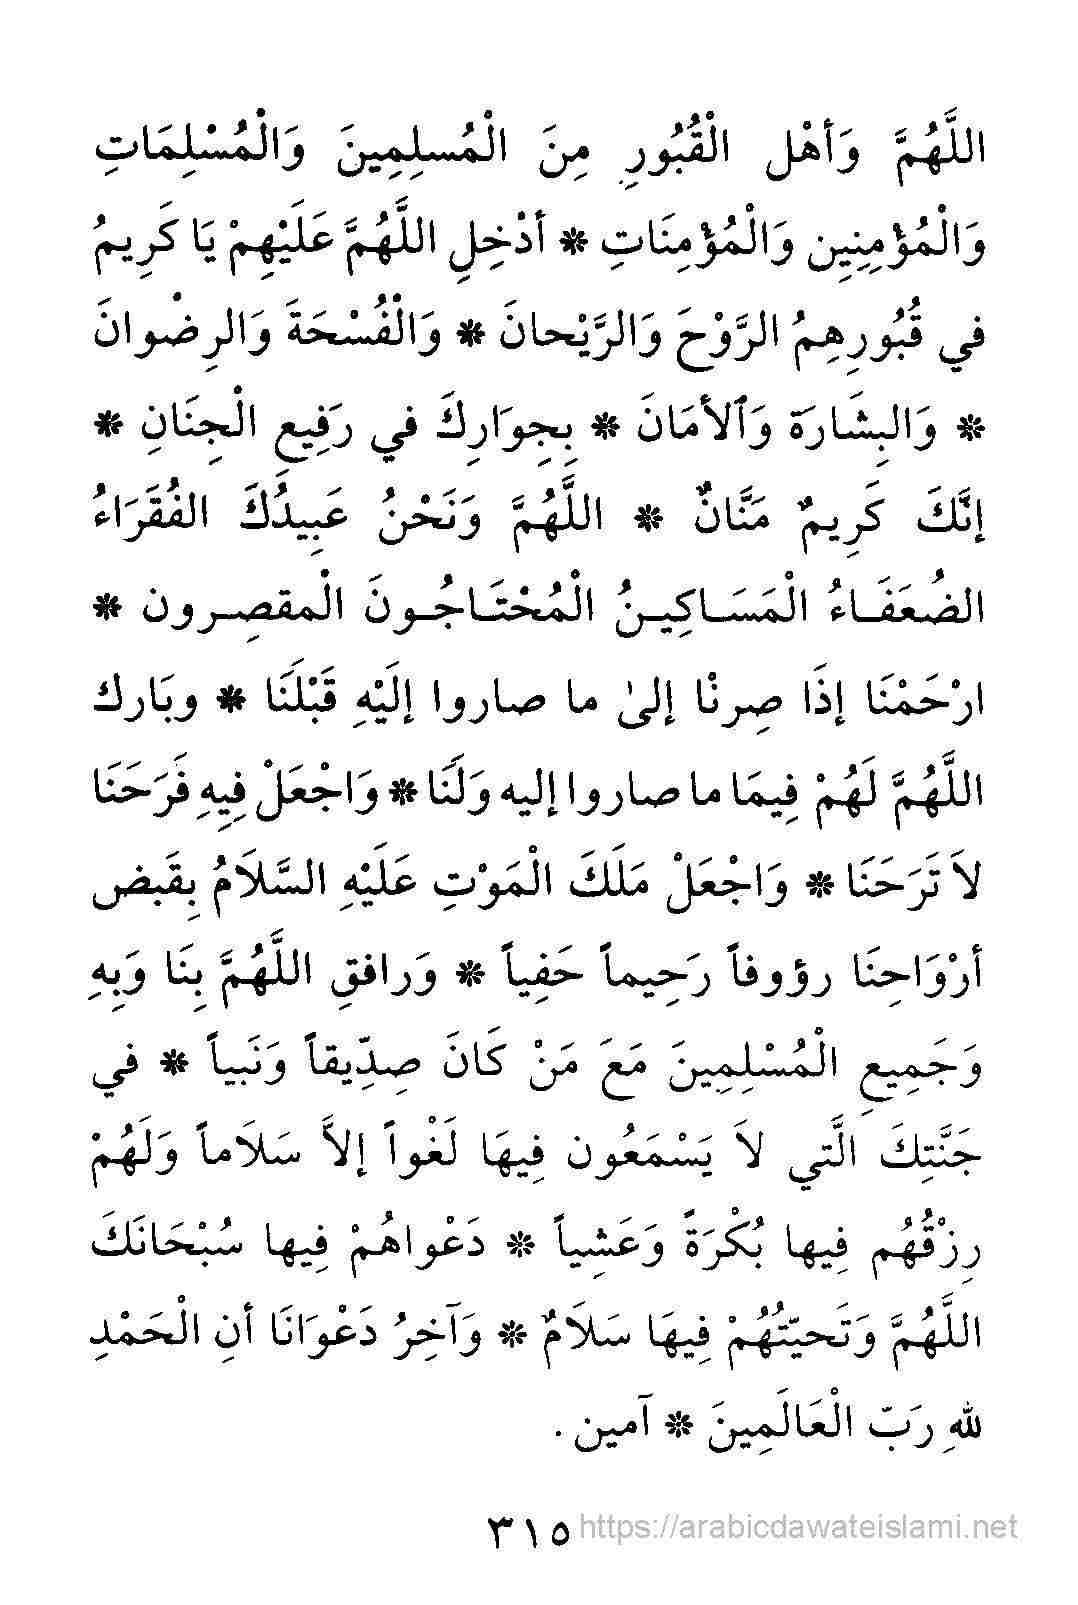 اللَّهُمَّ وَأهْل الْقُبُورِ مِنَ الْمُسلِمِينَ وَالْمُسْلِمَاتِ
وَالْمُؤمِنِين وَالْمُؤمِنَاتِ * أدْخِلِ اللَّهُمَّ عَلَيْهِمْ يَا كَرِيمُ
في قُبُورِهِمُ الرَّوْحَ وَالرَّيْحانَ * وَالْفُسْحَةَ وَالرِضْوانَ
* وَالبِشَارَة وَٱلأمَانَ * بِجِوَارِكَ في رَفِيع الْجِنَانِ *
إنَّكَ كَرِيمٌ مَنَّانٌ * اللَّهُمَّ وَنَحْنُ عَبِيدُكَ الفُقَرَاءُ
الضُعَفَاءُ الْمَسَاكِينُ الْمُحْتَاجُونَ الْمقصِرون *
ارْحَمْنَا إذَا صِرنْا إلىٰ ما صاروا إلَيْهِ قَبْلَنَا * وبَارك
اللَّهُمَّ لَهُمْ فِيمَا ما صاروا إليه وَلَنَا * وَاجْعَلْ فِيهِ فَرَحَنَا
لاَ تَرَحَنَا * وَاجْعَلْ مَلَكَ الْمَوْتِ عَلَيْهِ السَّلاَمُ بِقَبض
أرْوَاحِنَا رؤوفاً رَحِيماً حَفِياً * وَرافقِ اللَّهُمَّ بِنَا وَبِهِ
وَجَمِيعِ الْمُسْلِمِينَ مَعَ مَنْ كَانَ صِدِّيقاً وَنَبياً * في
جَنَّتِكَ الَّتي لاَ يَسْمَعُون فِيهَا لَغْواً إلاَّ سَلاَماً وَلَهُمْ
رِزْقُهُم فِيها بُكْرَةً وَعَشِياً * دَعْواهُمْ فِيها سُبْحَانَكَ
اللَّهُمَّ وَتَحيّتُهُمْ فِيهَا سَلاَمٌ * وَآخِرُ دَعْوَانَا أنِ الْحَمْدِ
للهِ رَبّ الْعَالَمِينَ * آمين .
٣١٥ https://arabicdawateislami.net